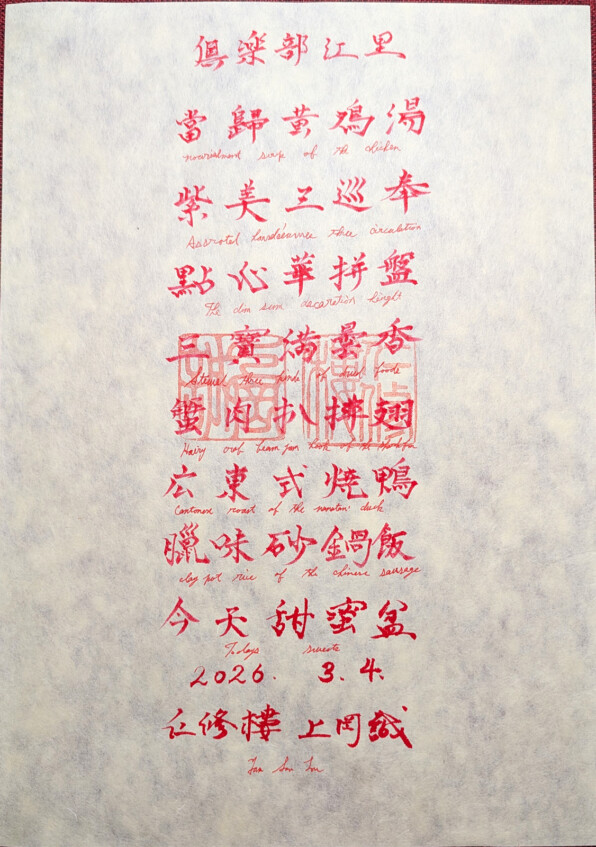 倶楽部江里
當歸黄鶏湯
nourishment soup of the chicken
紫美三巡奉
three circulation
點心華拼盤
The dim sum decoration
三寶満曇香
Stewed three kinds of dried foods
蟹肉扒排翅
Hairy crab
広東式焼鴨
Cantonese roast of the duck
臘味砂鍋飯
clay pot rice of the chinese sausage
今天甜蜜盆
Todays sweets
2026. 3. 4.
仁修樓 上岡誠